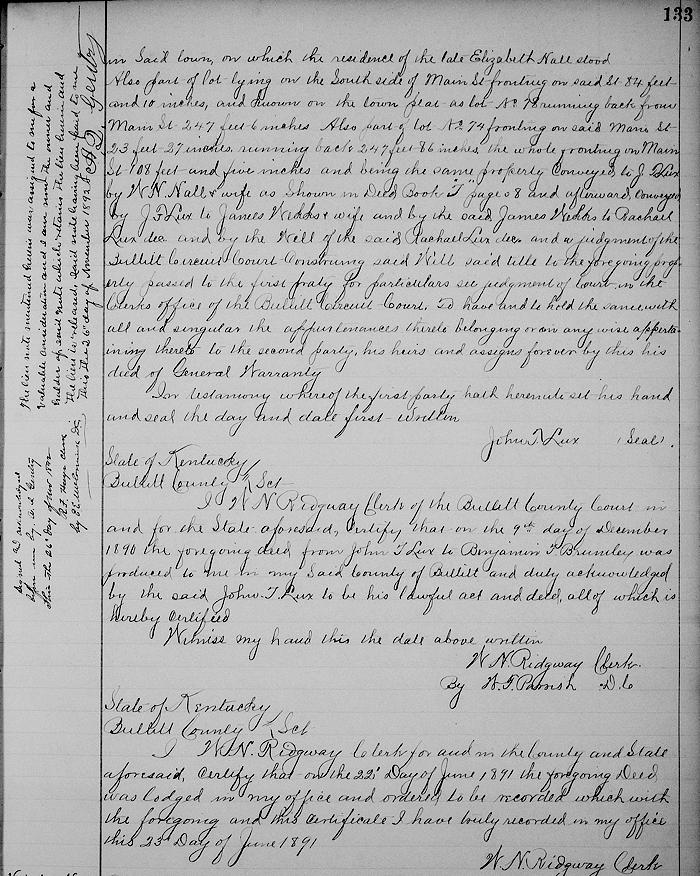 133
in Said town, on which the residence of the late Elizabeth Nall stood
Also part of lot lying on the South side of Main St fronting on said St 84 feet
and 10 inches, and known on the town plat as lot No 73 running back from
Main St 247 feet 6 inches Also part of lot No 74 fronting on said Main St
23 feet 27 inches running back 247 feet 86 inches, the whole fronting on Main
St 108 feet and five inches and being the same property Conveyed to J F Lux
by W N Nall & wife as Shown in Deed Book "T" page 58 and afterward, Conveyed
by J. F Lux to James Weeks & wife and by the said James Weeks to Rachael
Lux dec and by the Will of the said Rachael Lux dec and a judgment of the
Bullitt Circuit Court Construing said Will said title to the foregoing prop-
erty passed to the first praty for particulars see judgment of Court in the
Clerks office of the Bullitt Circuit Court, To have and to hold the same with
all and singular the appurtenances thereto belonging or in any wise apperta-
ining thereto to the second party, his heirs and assigns forever by this his
died of General Warranty
In testimony whereof the first party hath hereunto set his hand
and seal the day and date first written
John T Lux (Seal).
State of Kentucky
Bullitt County Sct
I W N Ridgway Clerk of the Bullitt County Court in
and for the State aforesaid, Certify that on the 9th day of December
1890 the foregoing deed from John T Lux to Benjamin T. Brumley was
produced to me in my Said County of Bullitt and duly acknowledged
by the said John. T. Lux to be his lawful act and deed, all of which is
hereby Certified
Witness my hand this the date above written
W N. Ridgway Clerk.
By W. T. Parrish D. C
State of Kentucky
Bullitt County Sct
I W. N. Ridgway Clerk for and in the County and State
aforesaid, Certify that on the 22d Day of June 1891 the foregoing Deed
was lodged in my office and ordered to be recorded which with
the foregoing and this Certificate I have truly recorded in my office
this 23 Day of June 1891
W. N. Ridgway Clerk
The lien note mentioned herein was assigned to me for a
valuable consideration and I am now the owner and
holder of said note which retains the lien herein and
the lien is released, said note having been paid to me
this the 26 day of November 1892
Gentry
Signed & acknowledged
before me by Gentry
this the 26 day of Nov 1892
Clerk
by